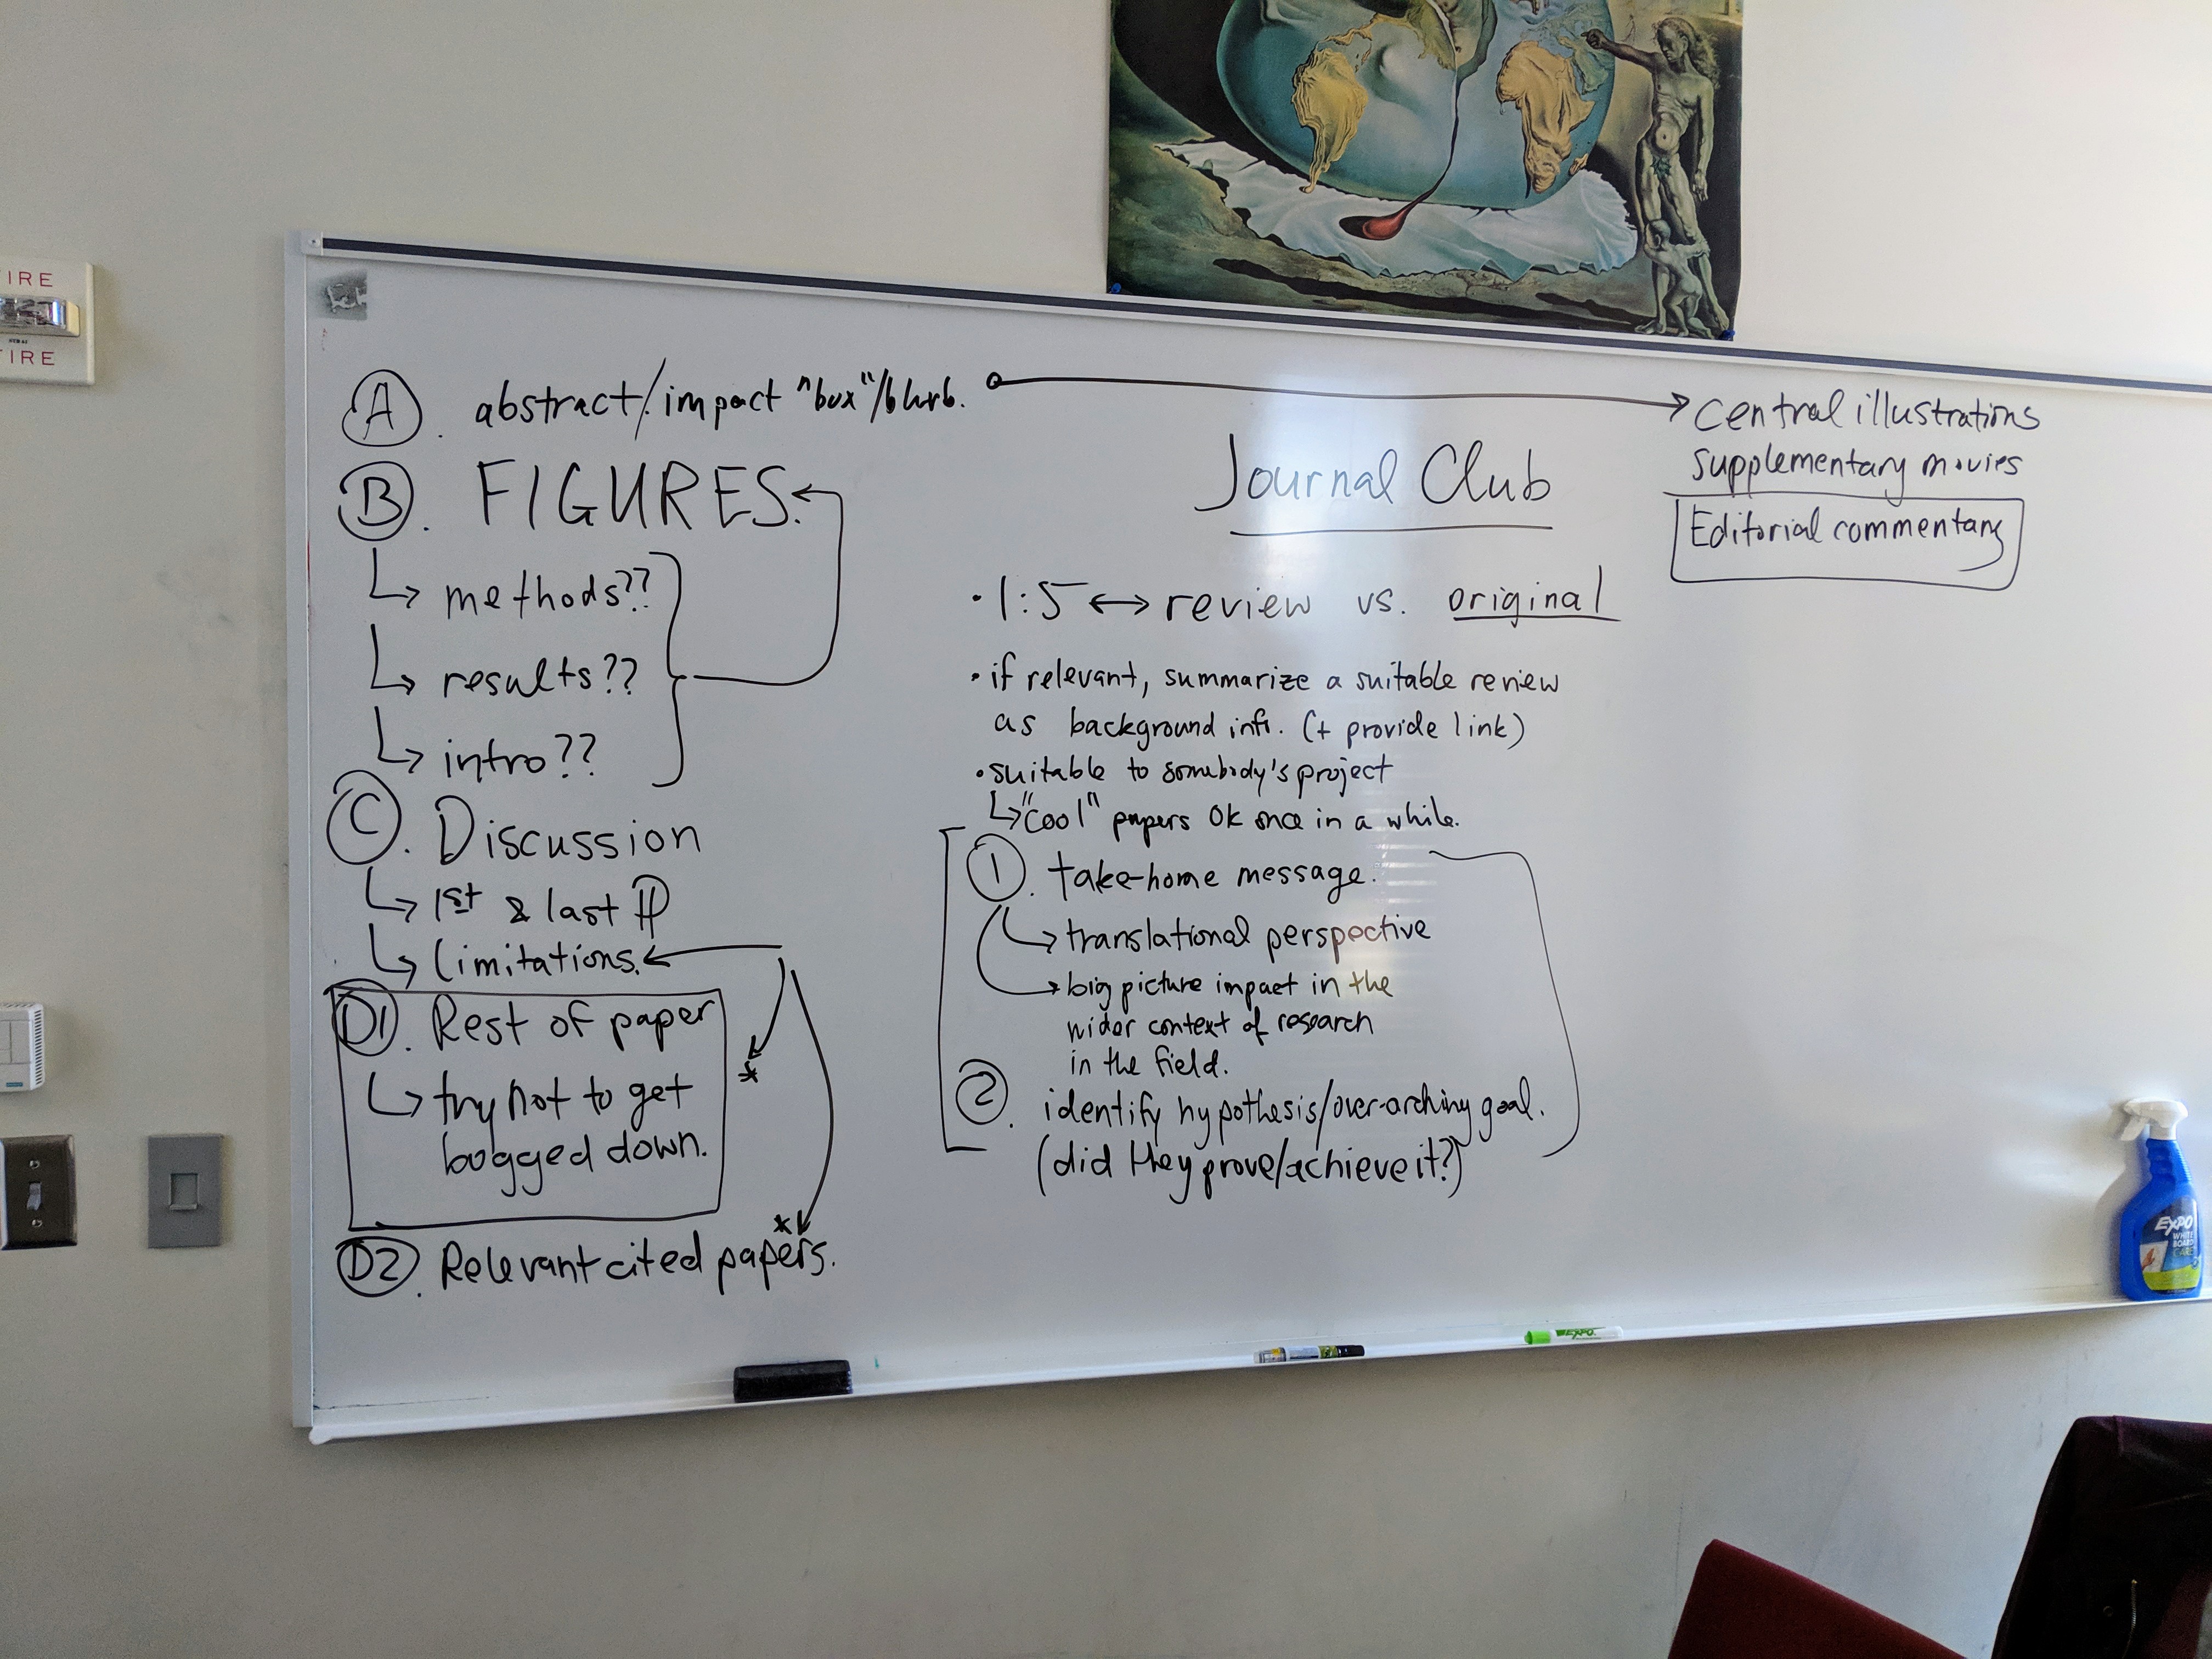 FIRE
FIRE
A. abstract/impact "box"/blurb.
B. FIGURES.
↳ methods??
↳ results??
↳ intro??
C. Discussion
↳ 1st & last ¶
↳ limitations.
D1. Rest of paper
↳ try not to get
bogged down.
*
*
D2. Relevant cited papers.
Journal Club
• 1:5 ↔ review vs. original
• if relevant, summarize a suitable review
as background info. (+ provide link)
• suitable to somebody's project
↳ "cool" papers ok once in a while.
1. take-home message.
→ translational perspective
→ big picture impact in the
wider context of research
in the field.
2. identify hypothesis/over-arching goal.
(did they prove/achieve it?)
→ central illustrations
supplementary movies
Editorial commentary
EXPO
WHITE
BOARD
CARE
EXPO